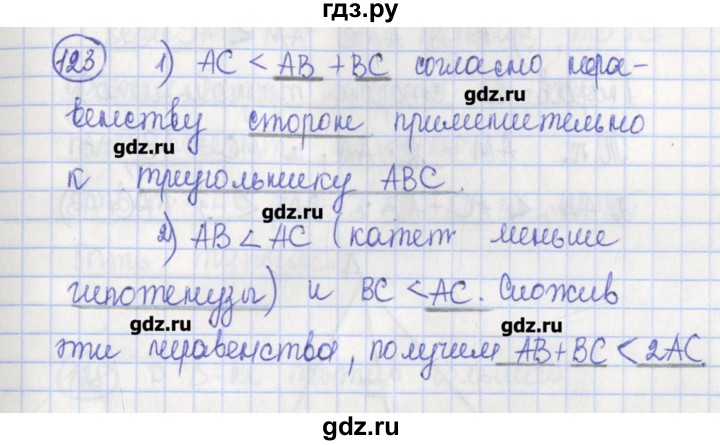 гдз.ру
123 1) AC < AB + BC согласно нера-
gdz.ru
венству сторон применительно
gdz.ru
к треугольнику ABC.
gdz.ru
2) AB < AC (катет меньше
gdz.ru
гипотенузы) и BC < AC. Сложив
gdz.ru gdz.ru
эти неравенства, получим AB + BC < 2AC.